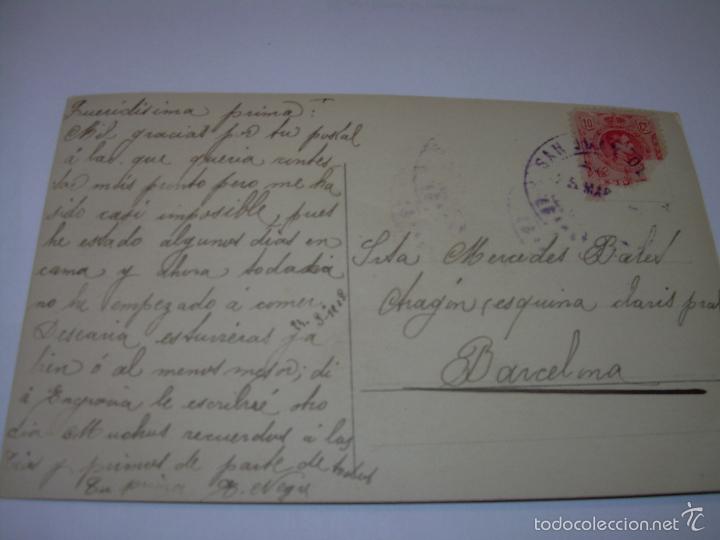 Queridisima prima:
Mil gracias por tu postal
á la que queria contes
tar mas pronto pero me ha
sido casi imposible, pues
he estado algunos dias en
cama y ahora todadia
no ha empezado á comer.
Descaria estuvieras ya
bien ó al menos mejor; di
á Engracia le escribiré otro
dia Muchos recuerdos á los
tias y primos de parte de todos
Tu prima
Srta Mercedes Balet
Aragón, esquina claris pral
Barcelona
10
SAN
5 MAR
todocoleccion
todocoleccion.net